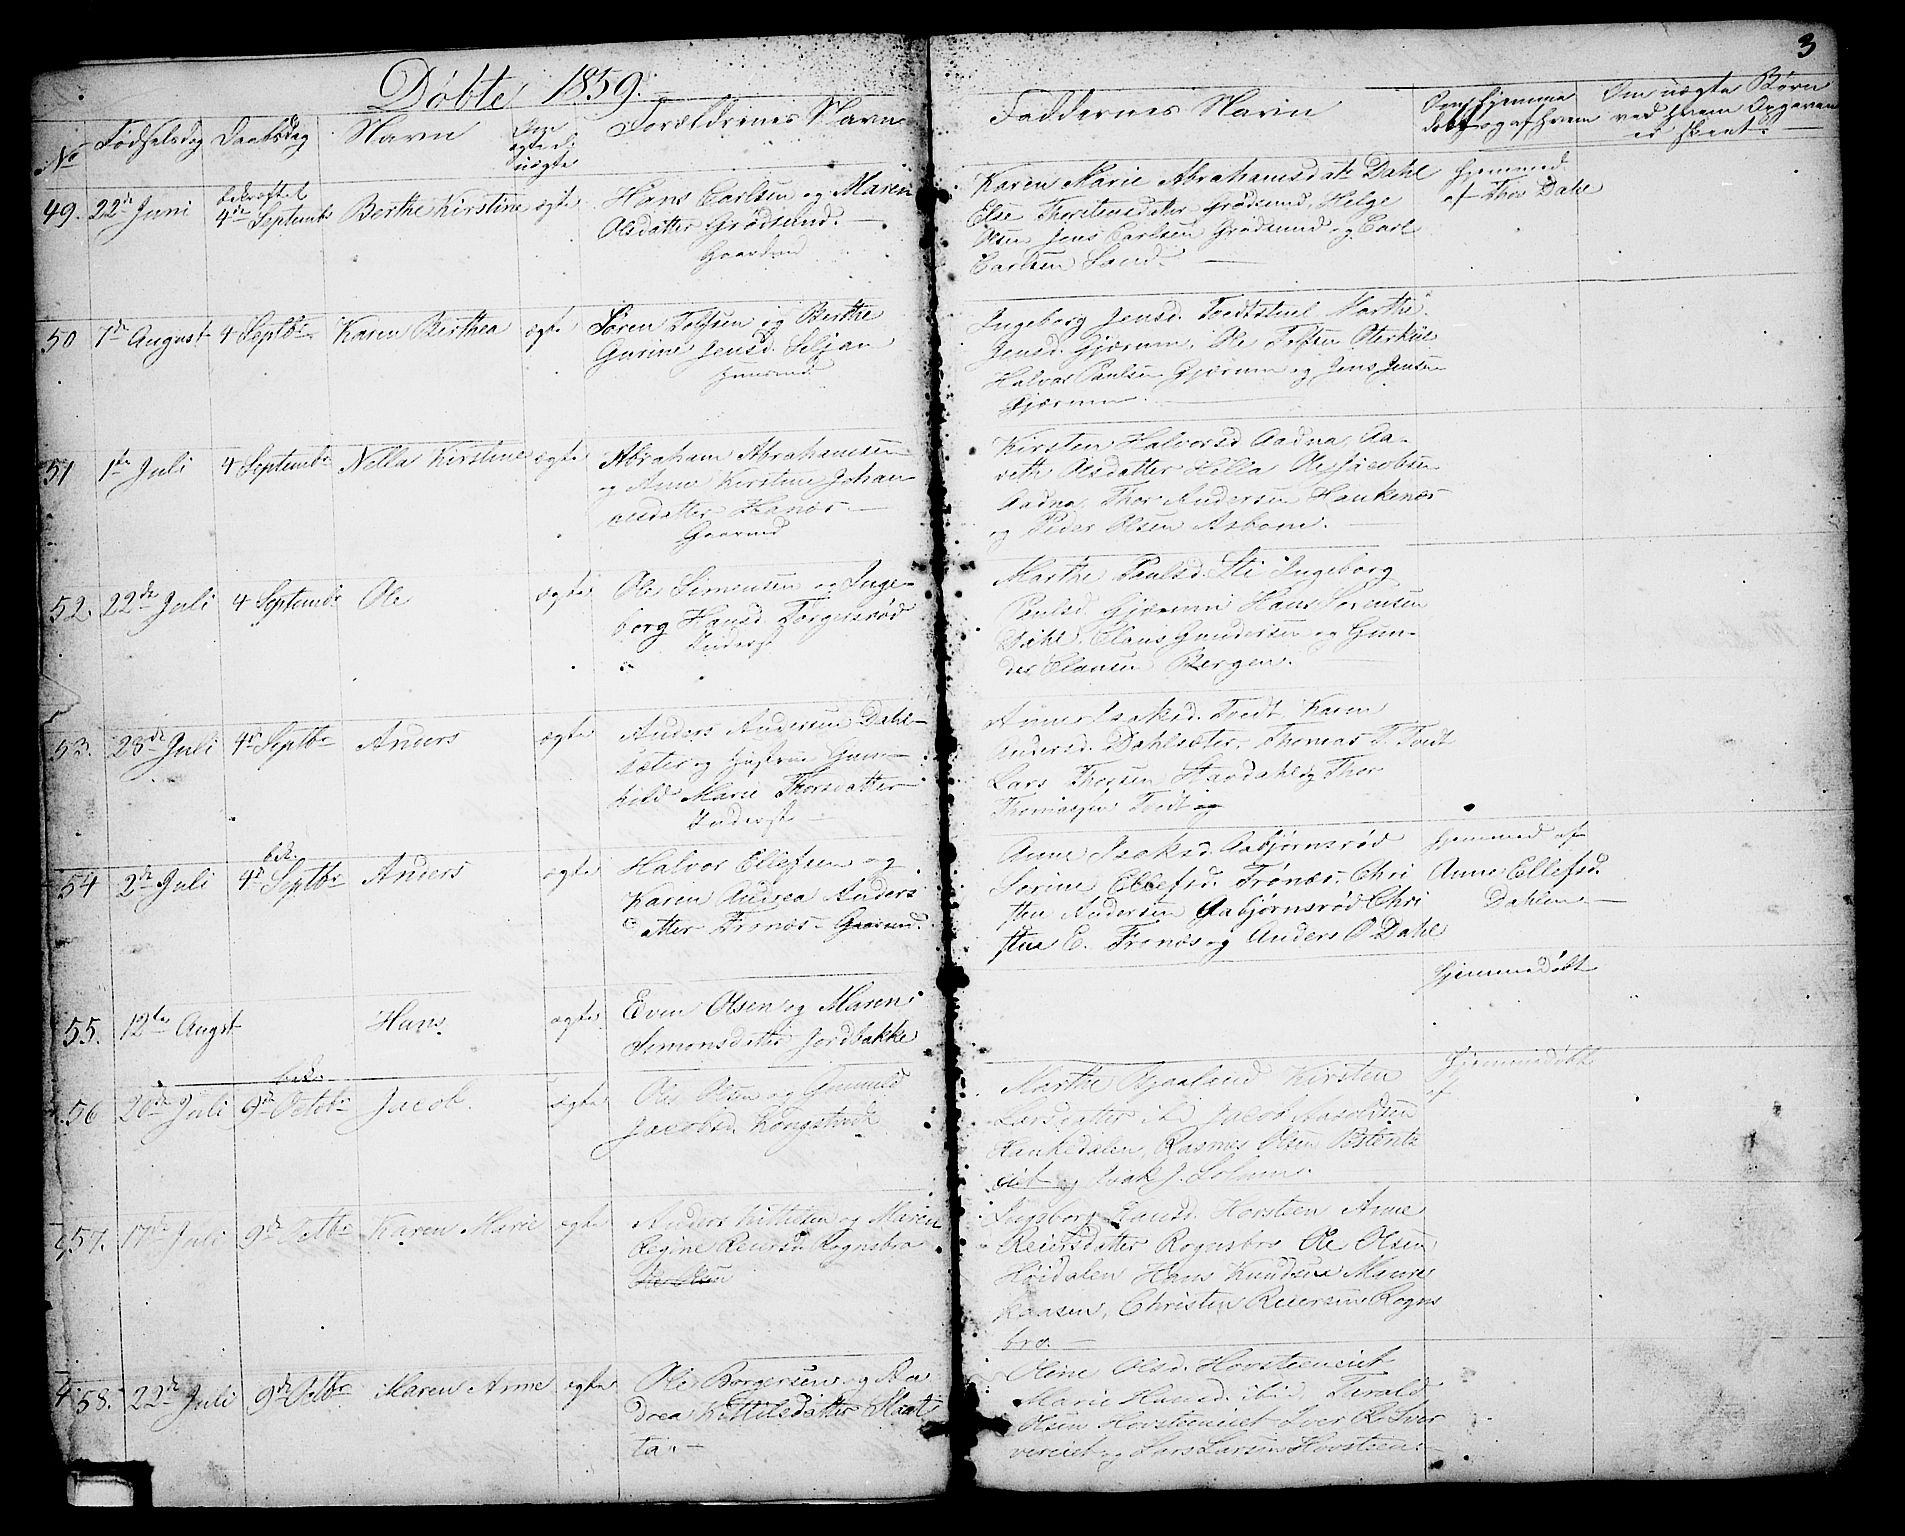 3
Døbte 1859.
No
Fødselsdag
Daabsdag
Navn
Om ægte el. uægte
Forældrenes Navn
Faddernes Navn
Om hjemme
døbt og af hvem
Om uægte Børn
ved hvem Opgaven
er skeet.
49. 22de Juni bekræftet 4de Septembr Berthe Kirstine ægte
Hans Carlsen og Maren
Olsdatter Grødsund.
Gaardmd
Karen Marie Abrahamsdatr Dahl
Else Thorstensdatter Grødsund, Helge
Olsen Jens Carlsen Grødsund og Carl
Carlsen Sand.
Hjemmed
af Thor Dahl
50 1ste August 4 Septbr Karen Berthea ægte
Søren Tolfsen og Berthe
Gurine Jensd. Seljan
Ingeborg Jensd. Tvedtstuel Marthe
Jensd. Gjærum, Ole
Halvor Paulsen Gjærum og Jens Jensen
Gjærum
51 1ste Juli 4 Septembr Nella Kirstine ægte
Abraham Abrahamsen
og Anne Kirstine Johan
nesdatter Hanæs
Gaarmd
Kirsten Halvorsd Aadna, Aa-
Olsdatter Hella Ole Jacobsen
Aadna, Thor Andersen Haukenæs
og Peder Olsen Asbom.
52. 22de Juli 4 Septembr Ole ægte
Ole Simensen og Inge-
borg Hansd Torgersrød
Inderst
Marthe Paulsd. Sti Ingeborg
Paulsd Gjærum Hans Sørensen
Dahl, Claus Gundersen og Gun-
der Clausen Bergen.
53. 23de Juli 4de Septbr Anders ægte
Anders Andersen Dahl-
sæter og Hustrue Gun-
hild Marie Thorsdatter
Inderst
Anne Isaksd. Tvedt Karen
Andersd. Dahlsæter, Thomas T. Tvedt
Lars Thorsen og Thor
Thomasen Tvedt og
54 2de Juli bek. 4de Septbr Anders ægte
Halvor Ellefsen og
Karen Andrea Anders
datter Frønæs Gaarmd.
Anne Isaksd. Aabjørnsrød
Serine Ellefsd. Frønæs. Chri
sten Andersen Aabjørnsrød Chri
sten E. Frønæs og Anders O Dahl
Hjemmed af
Anne Ellefsd.
Dahlen
55. 12te Augst Hans ægte
Even Olsen og Maren
Simonsdatter Jordbakke
Hjemmedøbt
56 20de Juli bek. 9de Octobr Jacob ægte
Ole Olsen og Gunnild
Jacobsd. Kongstvedt
Marthe Kirsten
Larsdatter ibd Jacob
Haukedalen, Rasmus Olsen
eiet og Isak J. Solum.
Hjemmedøbt
af
57. 17de Juli 9de Octbr Karen Marie ægte
Anders Kittilsen og Maren
Regine Reiersd. Rognsbro
Ingeborg Hansd. Horsteen Anne
Reiersdatter Rognsbro Ole Olsen
Høidalen Hans Knudsen Maure
kaasen, Christen Reiersen Rogns
bro.
58. 22de Juli 9de Octbr Maren Anne ægte
Ole Borgersen og An
drea Kittilsdatter Slaat
ta.
Oline Olsd. Hovsteeneiet
Marie Hansd. ibid Terald
Olsen Hovsteeneiet Iver
og Lars Larsen Hovsteen